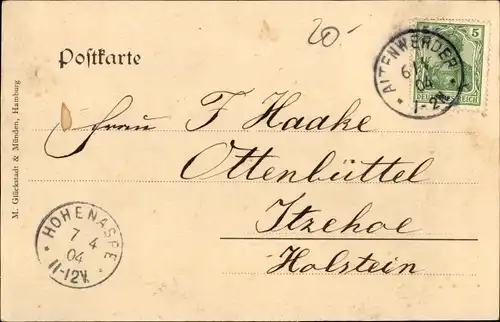 20.-
Postkarte
ALTENWERDER
6/4
04
1-2N
5
DEUTSCHES REICH
M. Glückstadt & Münden, Hamburg
Frau F Haake
Ottenbüttel
Itzehoe
Holstein
HOHENASPE
7 4
04
11-12V.